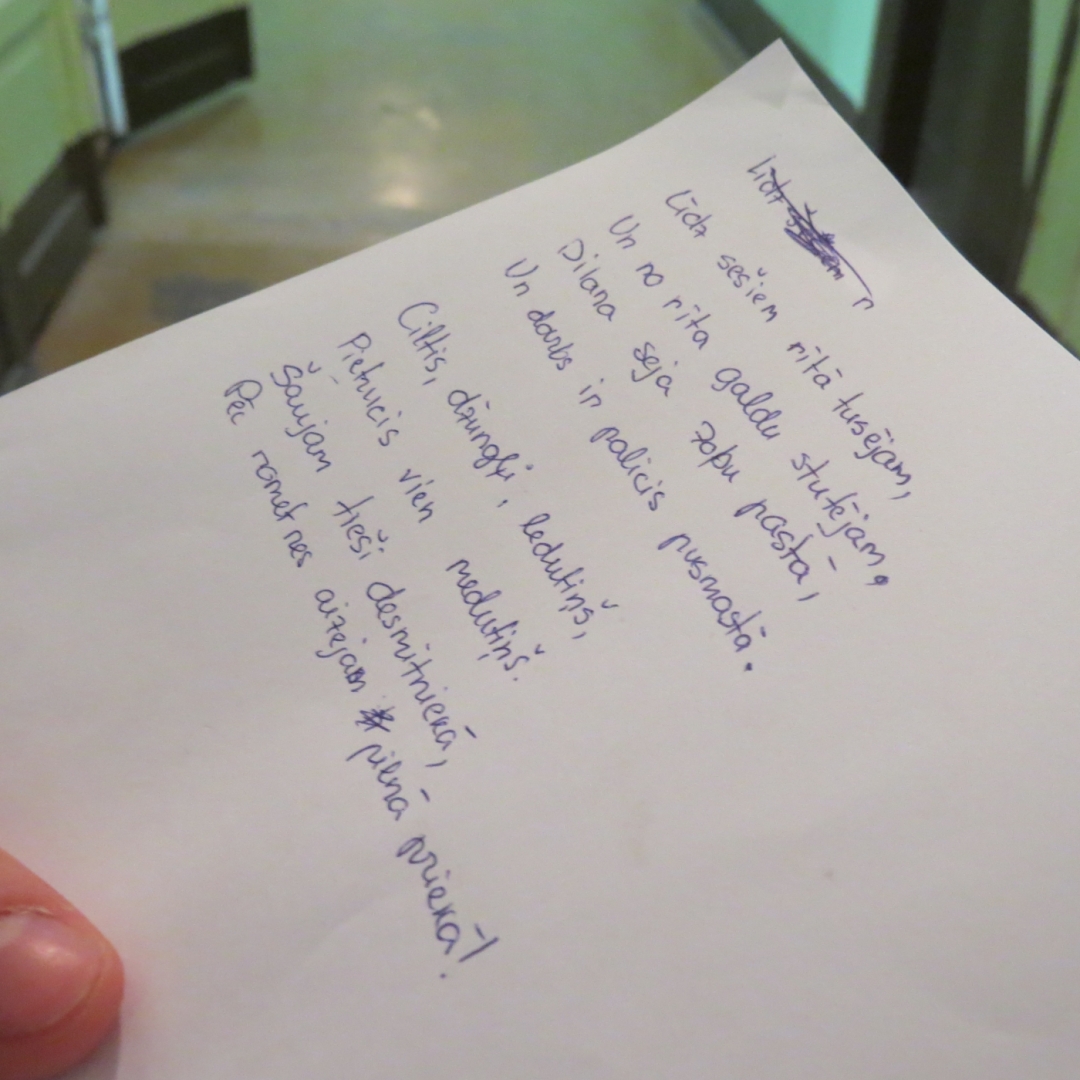 Līdz
Līdz sešiem rītā tusējam,
Un no rīta galdu stutējam,
Dilana seja zobu pastā,
Un darbs ir palicis pusmastā.
Ciltis, džungļi, ledutiņš,
Pietrūcis vien medutiņš.
Šaujam tieši desmitniekā,
Pēc nometnes aizejam pilnā priekā!